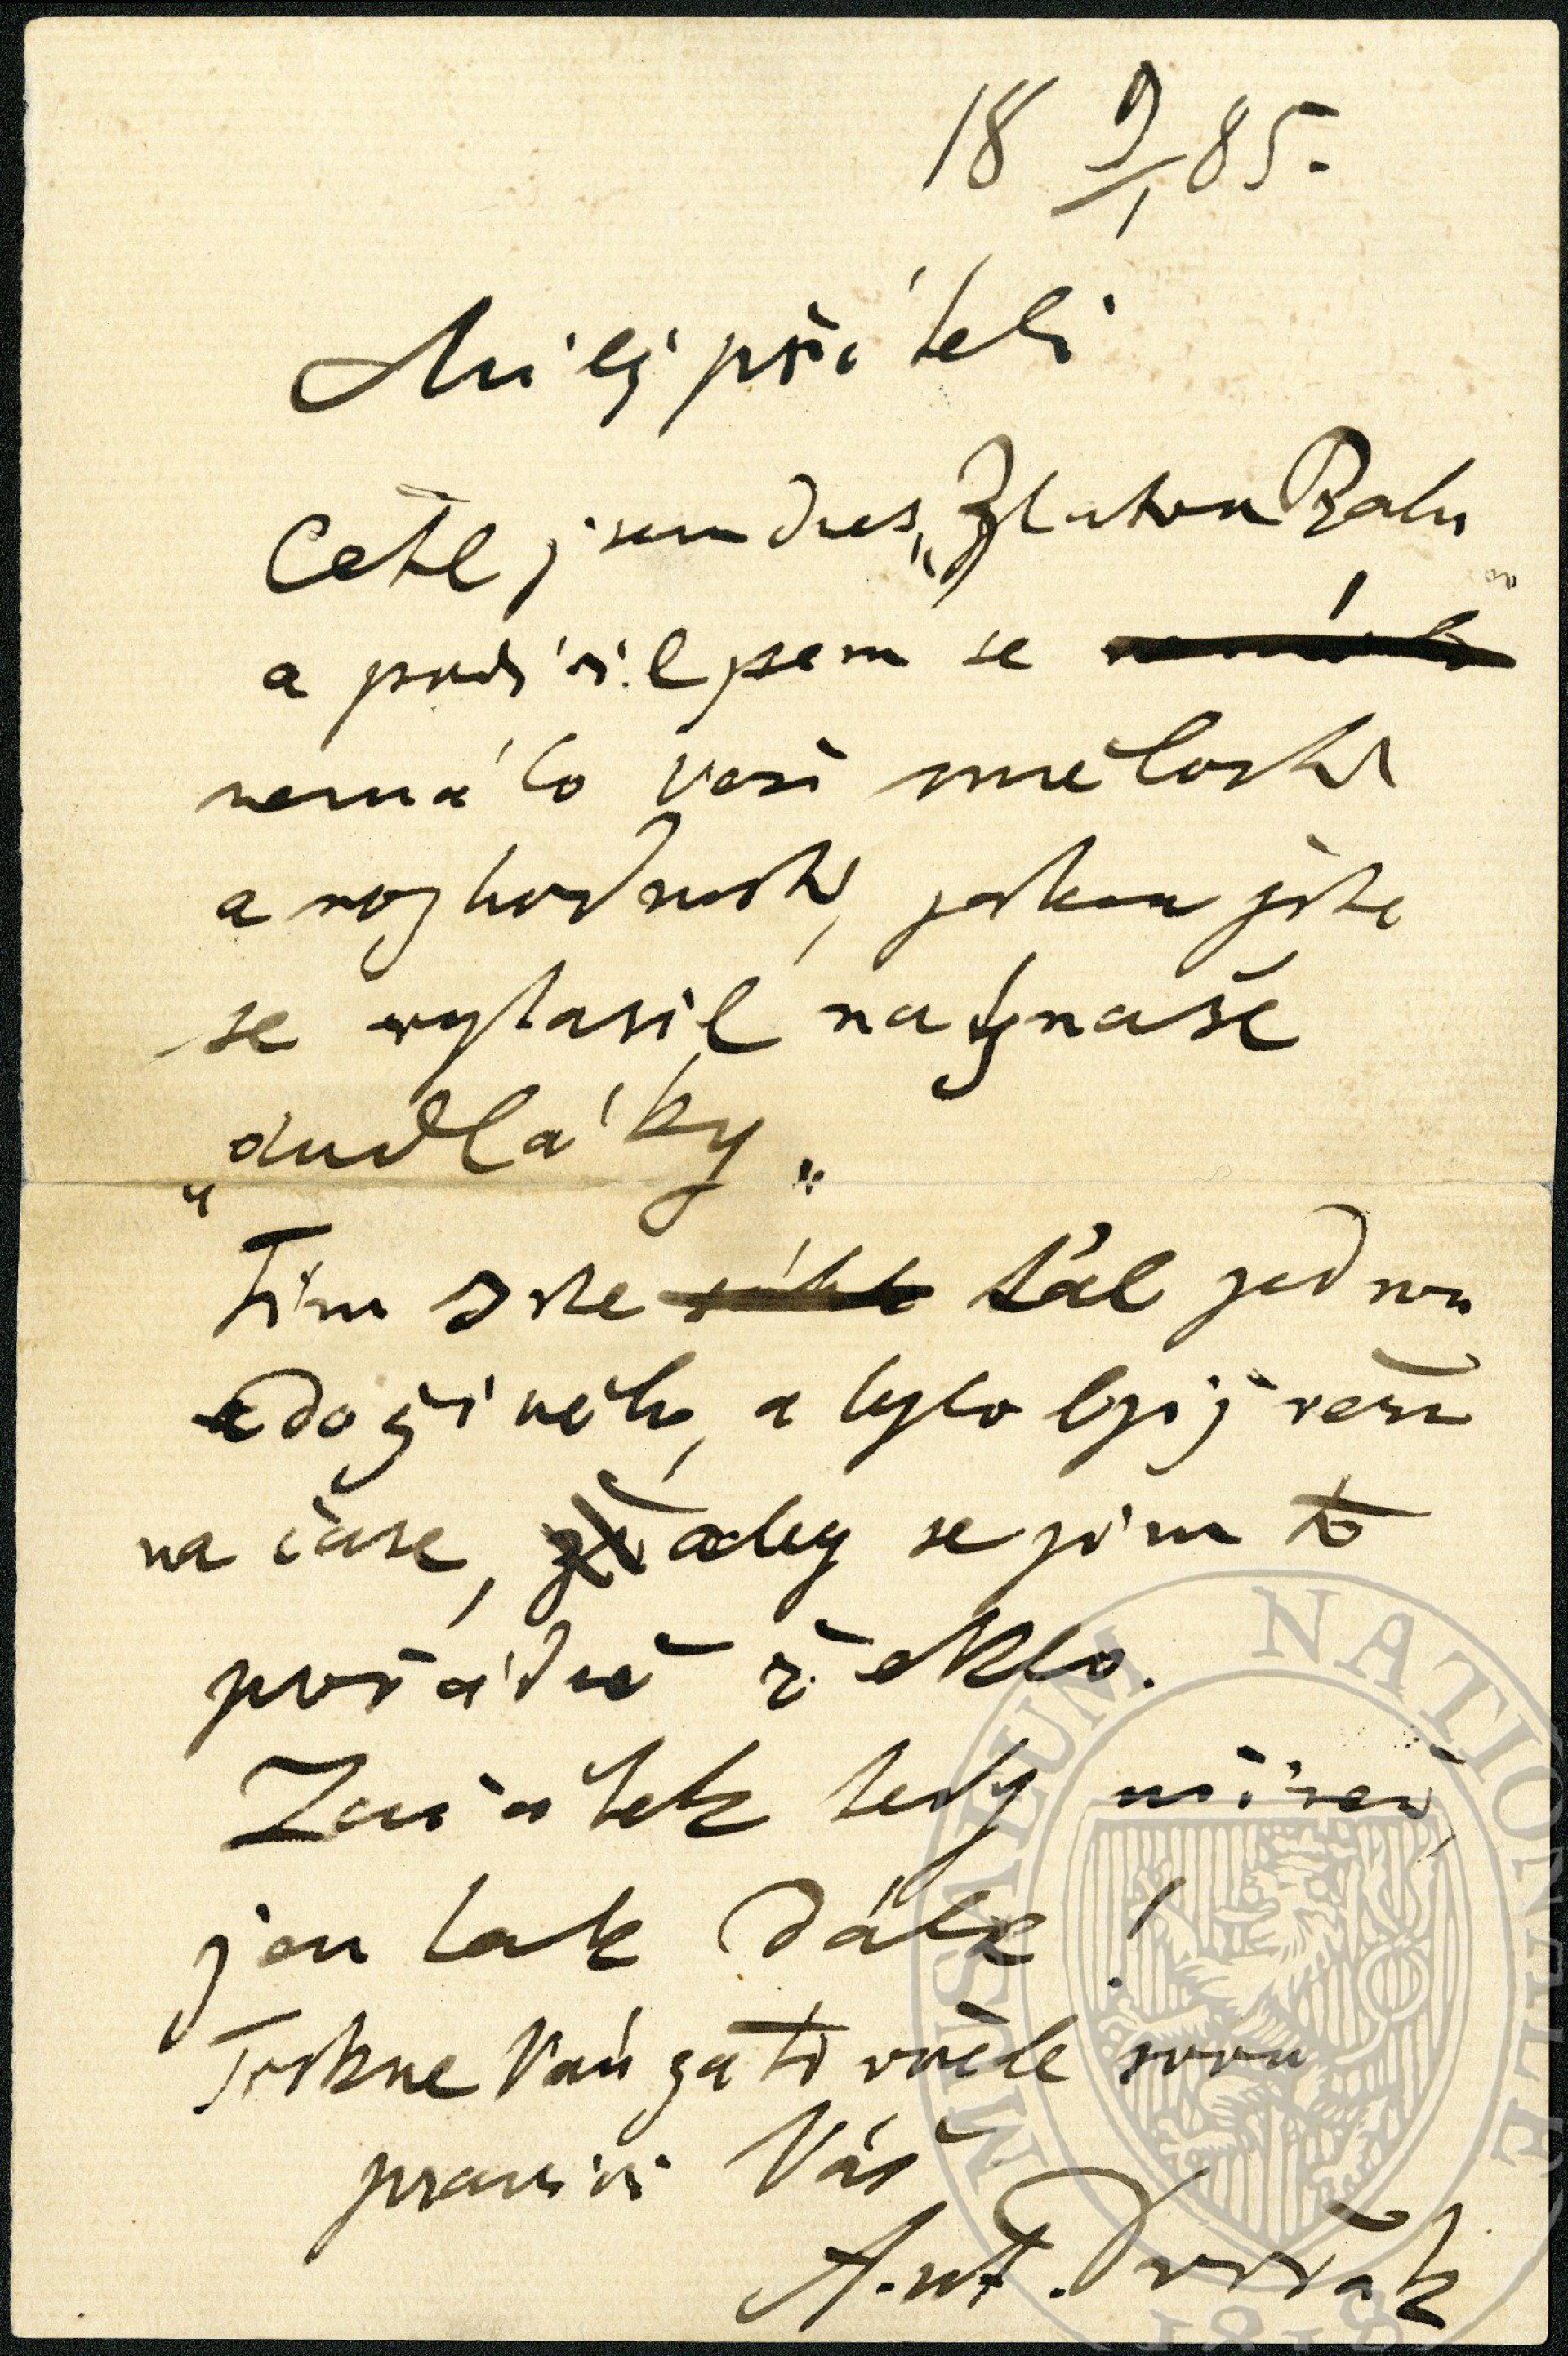 18 9/1 85.
Milý příteli
Četl jsem dnes „Zlatou Prahu"
a podivil jsem se nemálo
nemálo Vaší smělosti
a rozhodnosti, jakou jste
se vytasil na ty naše
„dudláky"
Tím jste ťal jednou
do živého, a bylo by již
na čase, aby se jim to
pořádně řeklo.
Začátek tedy učiněn,
jen tak dále!
Tiskne Vám za to vřele svou
pravici Váš
Ant. Dvořák
MUSEUM NATIONALE
1818